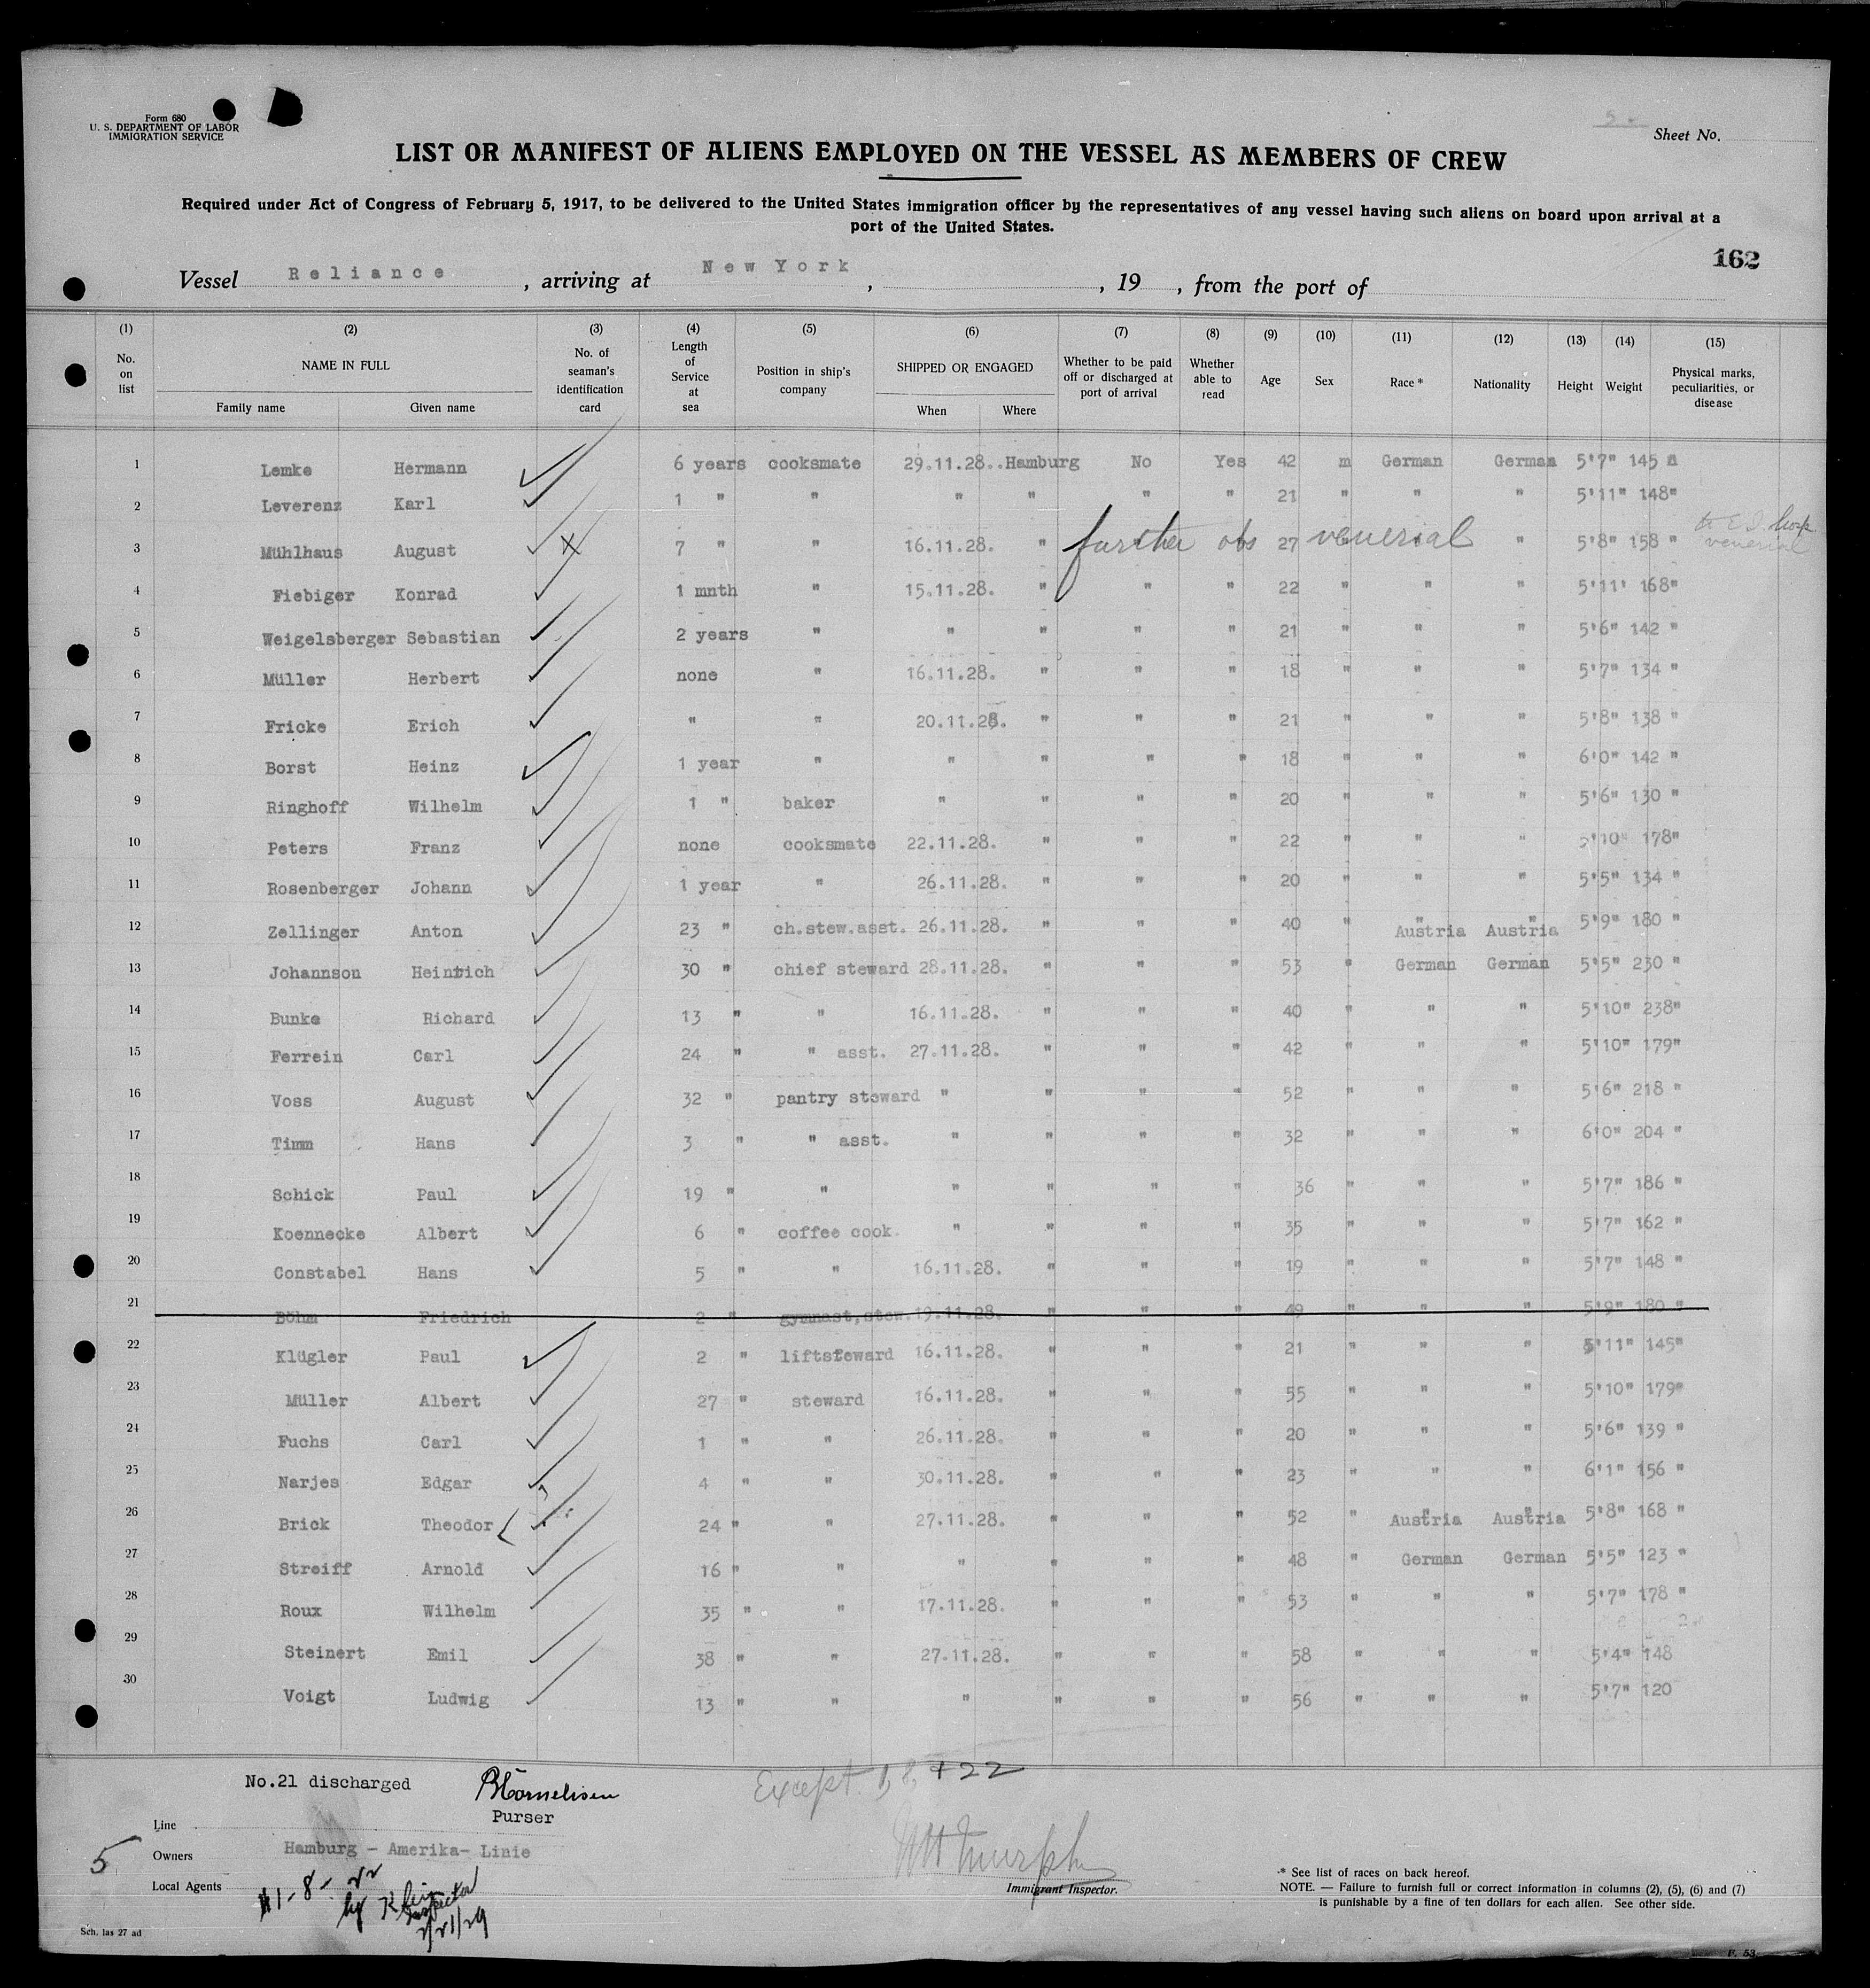 Form 680
U. S. DEPARTMENT OF LABOR
IMMIGRATION SERVICE
5.
Sheet No.
LIST OR MANIFEST OF ALIENS EMPLOYED ON THE VESSEL AS MEMBERS OF CREW
Required under Act of Congress of February 5, 1917, to be delivered to the United States immigration officer by the representatives of any vessel having such aliens on board upon arrival at a
port of the United States.
162
Vessel Reliance , arriving at New York , , 19 , from the port of
(1) (2) (3) (4) (5) (6) (7) (8) (9) (10) (11) (12) (13) (14) (15)
No. on list NAME IN FULL Family name Given name No. of seaman's identification card Length of Service at sea Position in ship's company SHIPPED OR ENGAGED When Where Whether to be paid off or discharged at port of arrival Whether able to read Age Sex Race * Nationality Height Weight Physical marks, peculiarities, or disease
1 Lemke Hermann 6 years cooksmate 29.11.28. Hamburg No Yes 42 m German German 5'7" 145 n
2 Leverenz Karl 1 " " " " " " 21 " " " 5'11" 148"
3 Mühlhaus August 7 " " 16.11.28. " further obs 27 venerial " 5'8" 158 " to E I Hosp venerial
4 Fiebiger Konrad 1 mnth " 15.11.28. " " " 22 " " " 5'11' 168"
5 Weigelsberger Sebastian 2 years " " " " " 21 " " " 5'6" 142 "
6 Müller Herbert none " 16.11.28. " " " 18 " " " 5'7" 134 "
7 Fricke Erich " " 20.11.28. " " " 21 " " " 5'8" 138 "
8 Borst Heinz 1 year " " " " " 18 " " " 6'0" 142 "
9 Ringhoff Wilhelm 1 " baker " " " " 20 " " " 5'6" 130 "
10 Peters Franz none cooksmate 22.11.28. " " " 22 " " " 5'10" 178"
11 Rosenberger Johann 1 year " 26.11.28. " " " 20 " " " 5'5" 134 "
12 Zellinger Anton 23 " ch.stew.asst. 26.11.28. " " " 40 " Austria Austria 5'9" 180 "
13 Johannson Heinrich 30 " chief steward 28.11.28. " " " 53 " German German 5'5" 230 "
14 Bunke Richard 13 " " 16.11.28. " " " 40 " " " 5'10" 238"
15 Ferrein Carl 24 " " asst. 27.11.28. " " " 42 " " " 5'10" 179"
16 Voss August 32 " pantry steward " " " " 52 " " " 5'6" 218 "
17 Timm Hans 3 " " asst. " " " " 32 " " " 6'0" 204 "
18 Schick Paul 19 " " " " " " 36 " " " 5'7" 186 "
19 Koennecke Albert 6 " coffee cook. " " " " 35 " " " 5'7" 162 "
20 Constabel Hans 5 " " 16.11.28. " " " 19 " " " 5'7" 148 "
21 Böhm Friedrich 2 " gymnast,stew. 19.11.28. " " " 49 " " " 5'9" 180 "
22 Klügler Paul 2 " liftsteward 16.11.28. " " " 21 " " " 5'11" 145"
23 Müller Albert 27 " steward 16.11.28. " " " 55 " " " 5'10" 179"
24 Fuchs Carl 1 " " 26.11.28. " " " 20 " " " 5'6" 139 "
25 Narjes Edgar 4 " " 30.11.28. " " " 23 " " " 6'1" 156 "
26 Brick Theodor 24 " " 27.11.28. " " " 52 " Austria Austria 5'8" 168 "
27 Streiff Arnold 16 " " " " " " 48 " German German 5'5" 123 "
28 Roux Wilhelm 35 " " 17.11.28. " " " 53 " " " 5'7" 178 "
29 Steinert Emil 38 " " 27.11.28. " " " 58 " " " 5'4" 148
30 Voigt Ludwig 13 " " " " " " 56 " " " 5'7" 120
No.21 discharged
Cornelisen
Purser
Except 1, 8, + 22
Line
5
Owners Hamburg - Amerika- Linie
Local Agents
#1-8-22
by Inspector
2/21/29
Murphy
Immigrant Inspector.
* See list of races on back hereof.
NOTE. — Failure to furnish full or correct information in columns (2), (5), (6) and (7)
is punishable by a fine of ten dollars for each alien. See other side.
Sch. las 27 ad
F. 53